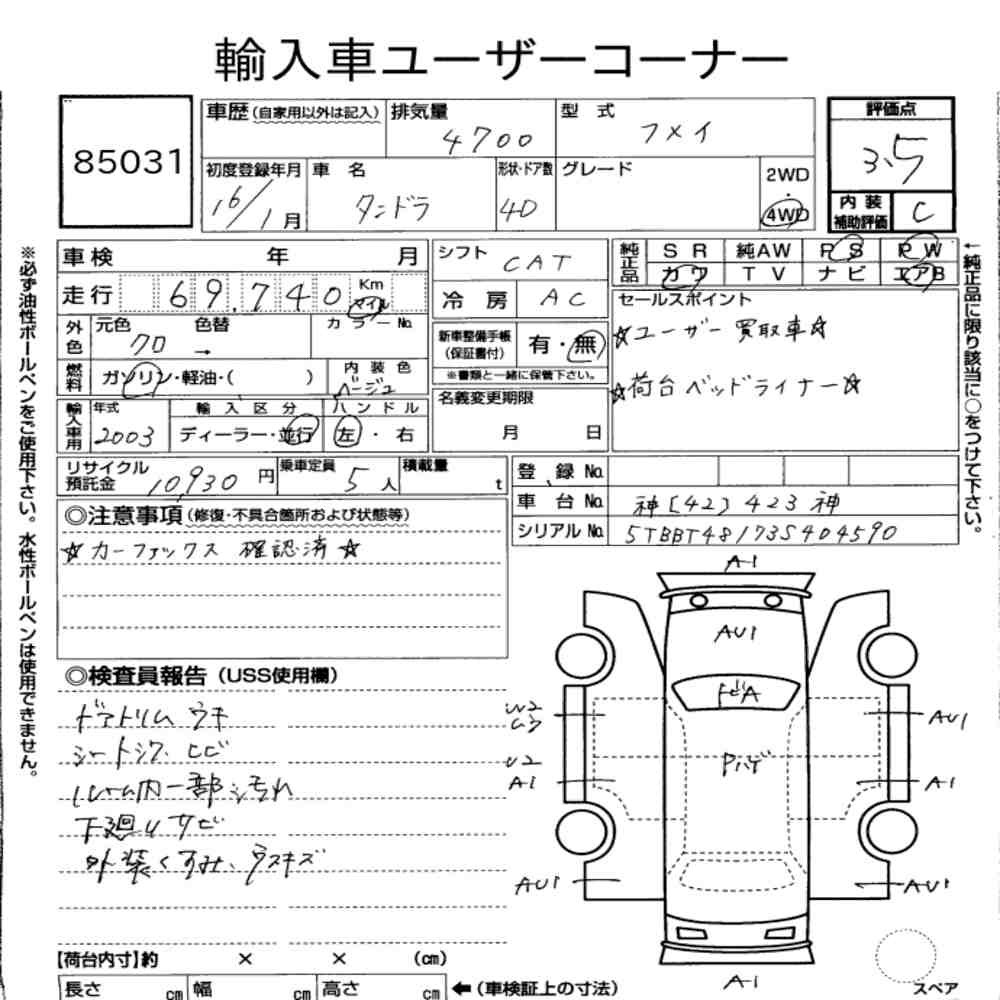 輸入車ユーザーコーナー
85031
車歴 (自家用以外は記入) 排気量 4700 型式 フメイ
評価点 3.5
初度登録年月 16/1月 車名 タンドラ 形状・ドア数 4D グレード 2WD・4WD
内装補助評価 C
車検 年 月
シフト CAT
純正品 SR 純AW PS PW
カワ TV ナビ エアB
走行 69.740 Km マイル
冷房 AC
セールスポイント
☆ユーザー買取車☆
☆荷台ベッドライナー☆
外色 元色 クロ 色替 → カラーNo.
新車整備手帳 (保証書付) 有・無
※書類と一緒に保管下さい。
燃料 ガソリン・軽油・( ) 内装色 ベージュ
名義変更期限 月 日
輸入車用 年式 2003 輸入区分 ディーラー・並行 ハンドル 左・右
リサイクル預託金 10,930円 乗車定員 5人 積載量 t
登録No.
車台No. 神[42]423神
シリアルNo. 5TBBT48173S404590
◎注意事項 (修復・不具合箇所および状態等)
☆カーファックス 確認済☆
◎検査員報告 (USS使用欄)
ドアトリム ウキ
シートシワ、ヒビ
内一部汚れ
下廻りサビ
外装くすみ、ウスキズ
A1
AU1
トビA
Pハゲ
W2
U3
AU1
U2
A1
A1
AU1
AU1
A1
スペア
【荷台内寸】約 × × (cm)
長さ cm 幅 cm 高さ cm ←(車検証上の寸法)
※必ず油性ボールペンをご使用下さい。水性ボールペンは使用できません。
←純正品に限り該当に○をつけて下さい。